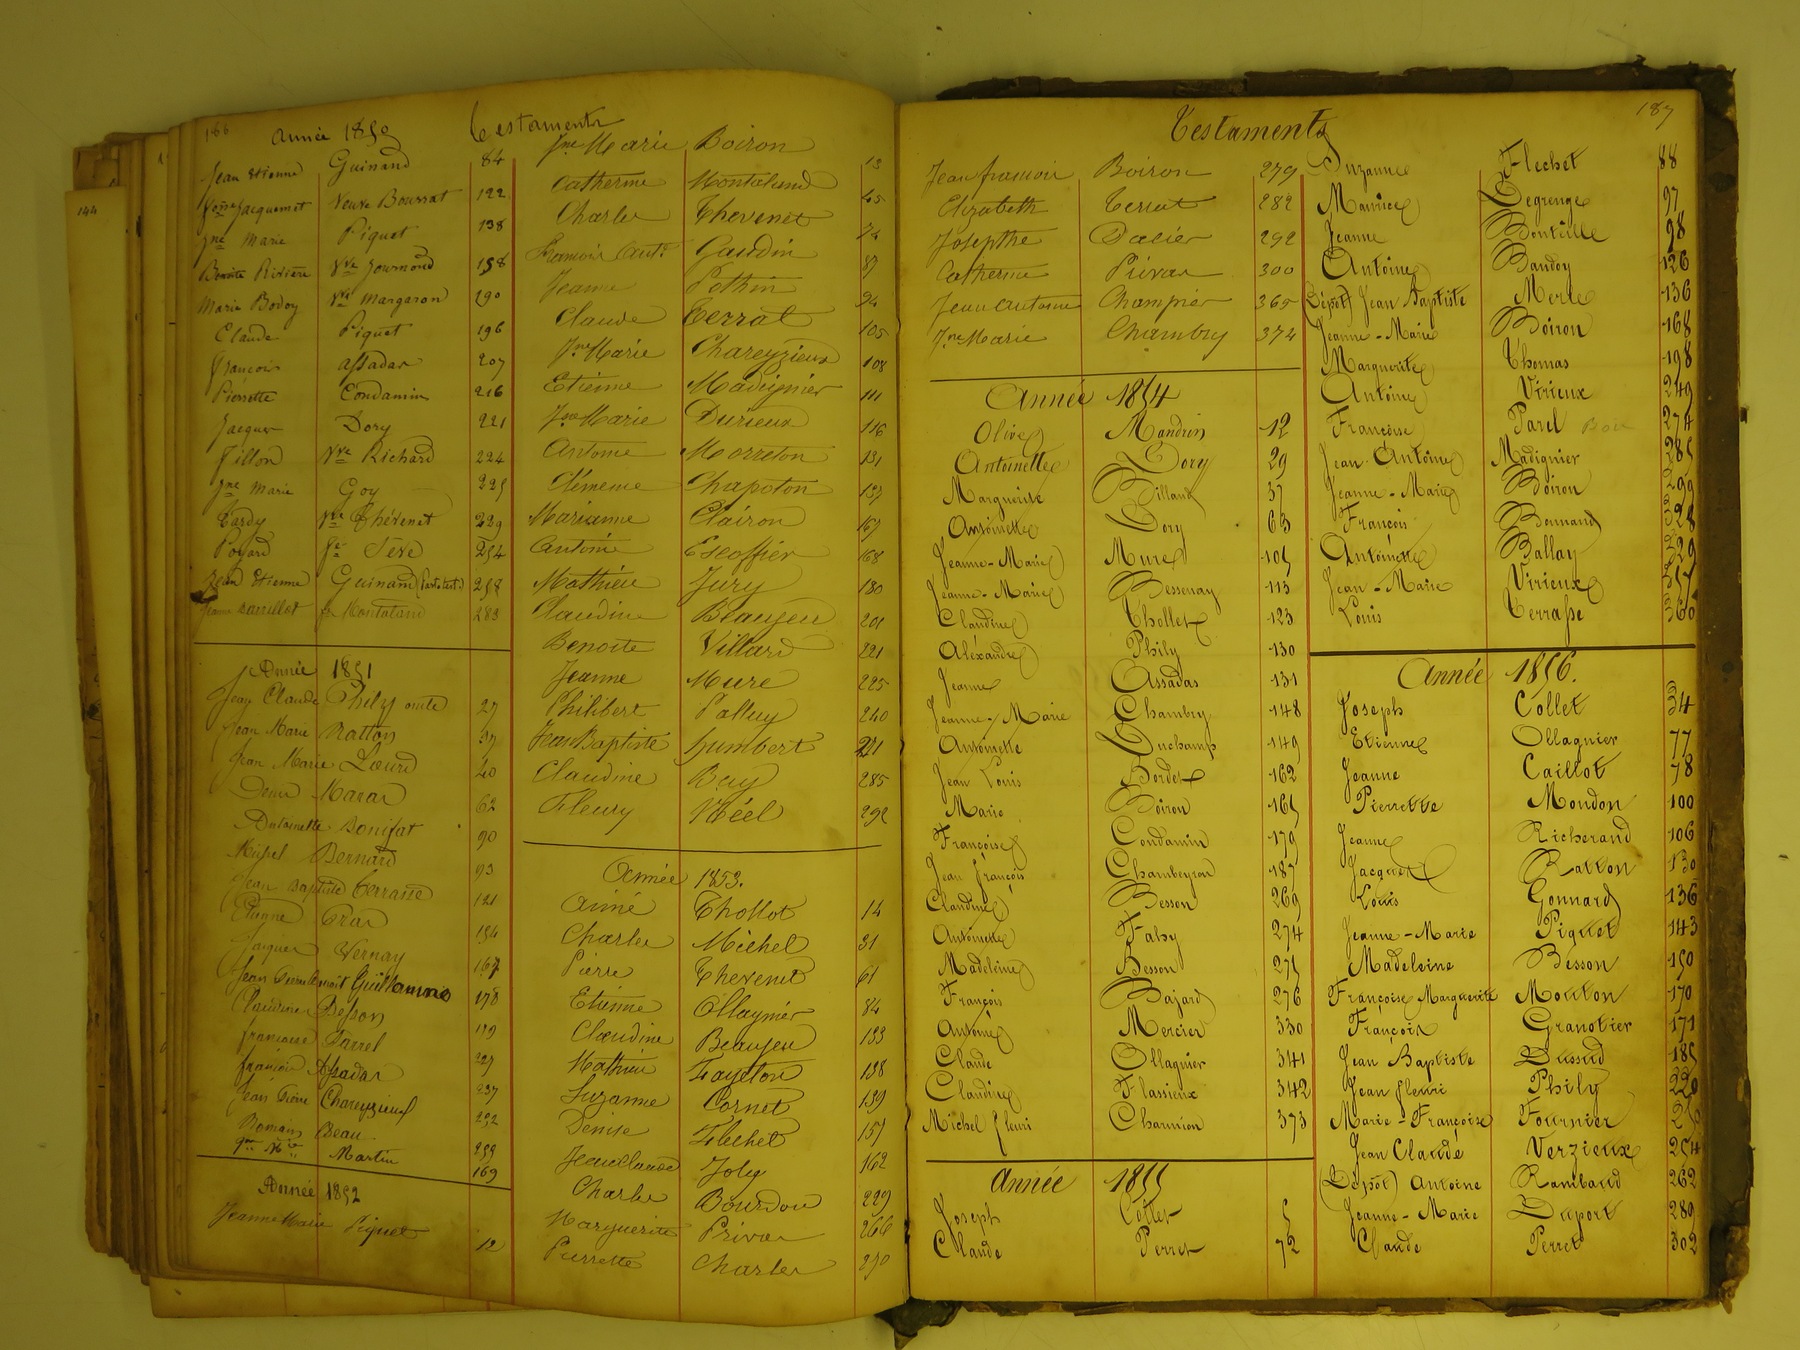 144
186
année 1850
Testaments
Jean Etienne Guinand 84
Jacquemet Veuve Boussat 122
Jne Marie Piquet 138
Benoite Rivière Vve Journoud 158
Marie Bodoy Vve Margaron 190
Claude Piquet 196
François assadas 207
Pierrette Condamin 216
Jacques Dory 221
Fillon Vve Richard 224
Jne Marie Goy 225
Tardy Vve Thévenet 239
Poyard fe Sève 254
Jean Etienne Guinand 258
283
Année 1851
Jean Claude Phily 27
Jean Marie Ratton 37
Jean Marie Lourd 40
Denis Maras 62
Antoinette Bonifat 90
Michel Bernard 93
Jean Baptiste Terrasse 121
Etienne Cras 154
Jacques Vernay 167
Jean Guillaume 178
Claudine Besson 199
françoise Parrel 227
françois Assadas 237
Jean Pierre Chareyzieux 252
Romain Beau 259
Martin 169
Année 1852
Jeanne Marie Piquet 12
Jne Marie Boiron 13
Catherine Montaland 45
Charles Thevenet 74
François Gaudin 87
Jeanne Pothin 94
Claude Terrat 105
Jne Marie Chareyzieux 108
Etienne Madignier 111
Jne Marie Durieux 116
Antoine Morreton 131
Clémence Chapoton 137
Marianne Clairon 167
Antoine Escoffier 168
Mathieu Jury 180
Claudine Beaujeu 201
Benoite Villard 221
Jeanne Mure 225
Philibert Palluy 240
Jean Baptiste humbert 221
Claudine Bay 285
Fleury Néel 292
Année 1853.
Aimé Thollot 14
Charles Michel 31
Pierre Thevenet 61
Etienne Ollagnier 84
Claudine Beaujeu 133
Mathieu Fayolon 138
Suzanne Cornet 139
Denise Flechet 157
Jean Claude Joly 162
Charles Bourdon 229
Marguerite Privas 266
Pierrette Charles 270
187
Testaments
Jean françois Boiron 279
Elizabeth Terrat 282
Josepthe Dalier 292
Catherine Privas 300
Jean Antoine Champier 365
Jne Marie Chambry 374
Année 1854
Olive Mandrin 12
Antoinette Dory 29
Marguerite Billand 37
Antoinette Dory 63
Jeanne-Marie Mure 105
Jeanne-Marie Bessenay 113
Claudine Thollet 123
Alexandre Phily 130
Jeanne Assadas 131
Jeanne Marie Chambry 148
Antoinette Duchamp 149
Jean Louis Bordet 162
Marie Boiron 165
Françoise Condamin 179
Jean François Chambeyron 187
Claudine Besson 269
Antoinette Faby 274
Madeleine Besson 275
François Bajard 276
Antoine Mercier 330
Claude Ollagnier 341
Claudine Flassieux 342
Michel fleuri Charmion 373
Année 1855
Joseph Collet 5
Claude Perret 72
Suzanne Flechet 88
Maurice Degrenge 97
Jeanne Bonteille 98
Antoine Baudoy 126
(Dépot) Jean Baptiste Merle 136
Jeanne-Marie Boiron 168
Marguerite Thomas 198
Antoine Virieux 249
Françoise Parel 274
Jean Antoine Madignier 285
Jeanne-Marie Boiron 299
François Bonnand 328
Antoinette Ballay 329
Jean-Marie Virieux 357
Louis Terrasse 360
Année 1856.
Joseph Collet 34
Etienne Ollagnier 77
Jeanne Caillot 78
Pierrette Moudon 100
Jeanne Richerand 106
Jacques Ratton 130
Louis Gonnard 136
Jeanne-Marie Piquet 143
Madeleine Besson 150
Françoise Marguerite Mouton 170
François Granotier 171
Jean Baptiste Dussud 185
Jean fleuri Phily 220
Marie-Françoise Fournier
Jean Claude Verzieux 254
(Dépot) Antoine Rambaud 262
Jeanne-Marie Duport 289
Claude Perret 302